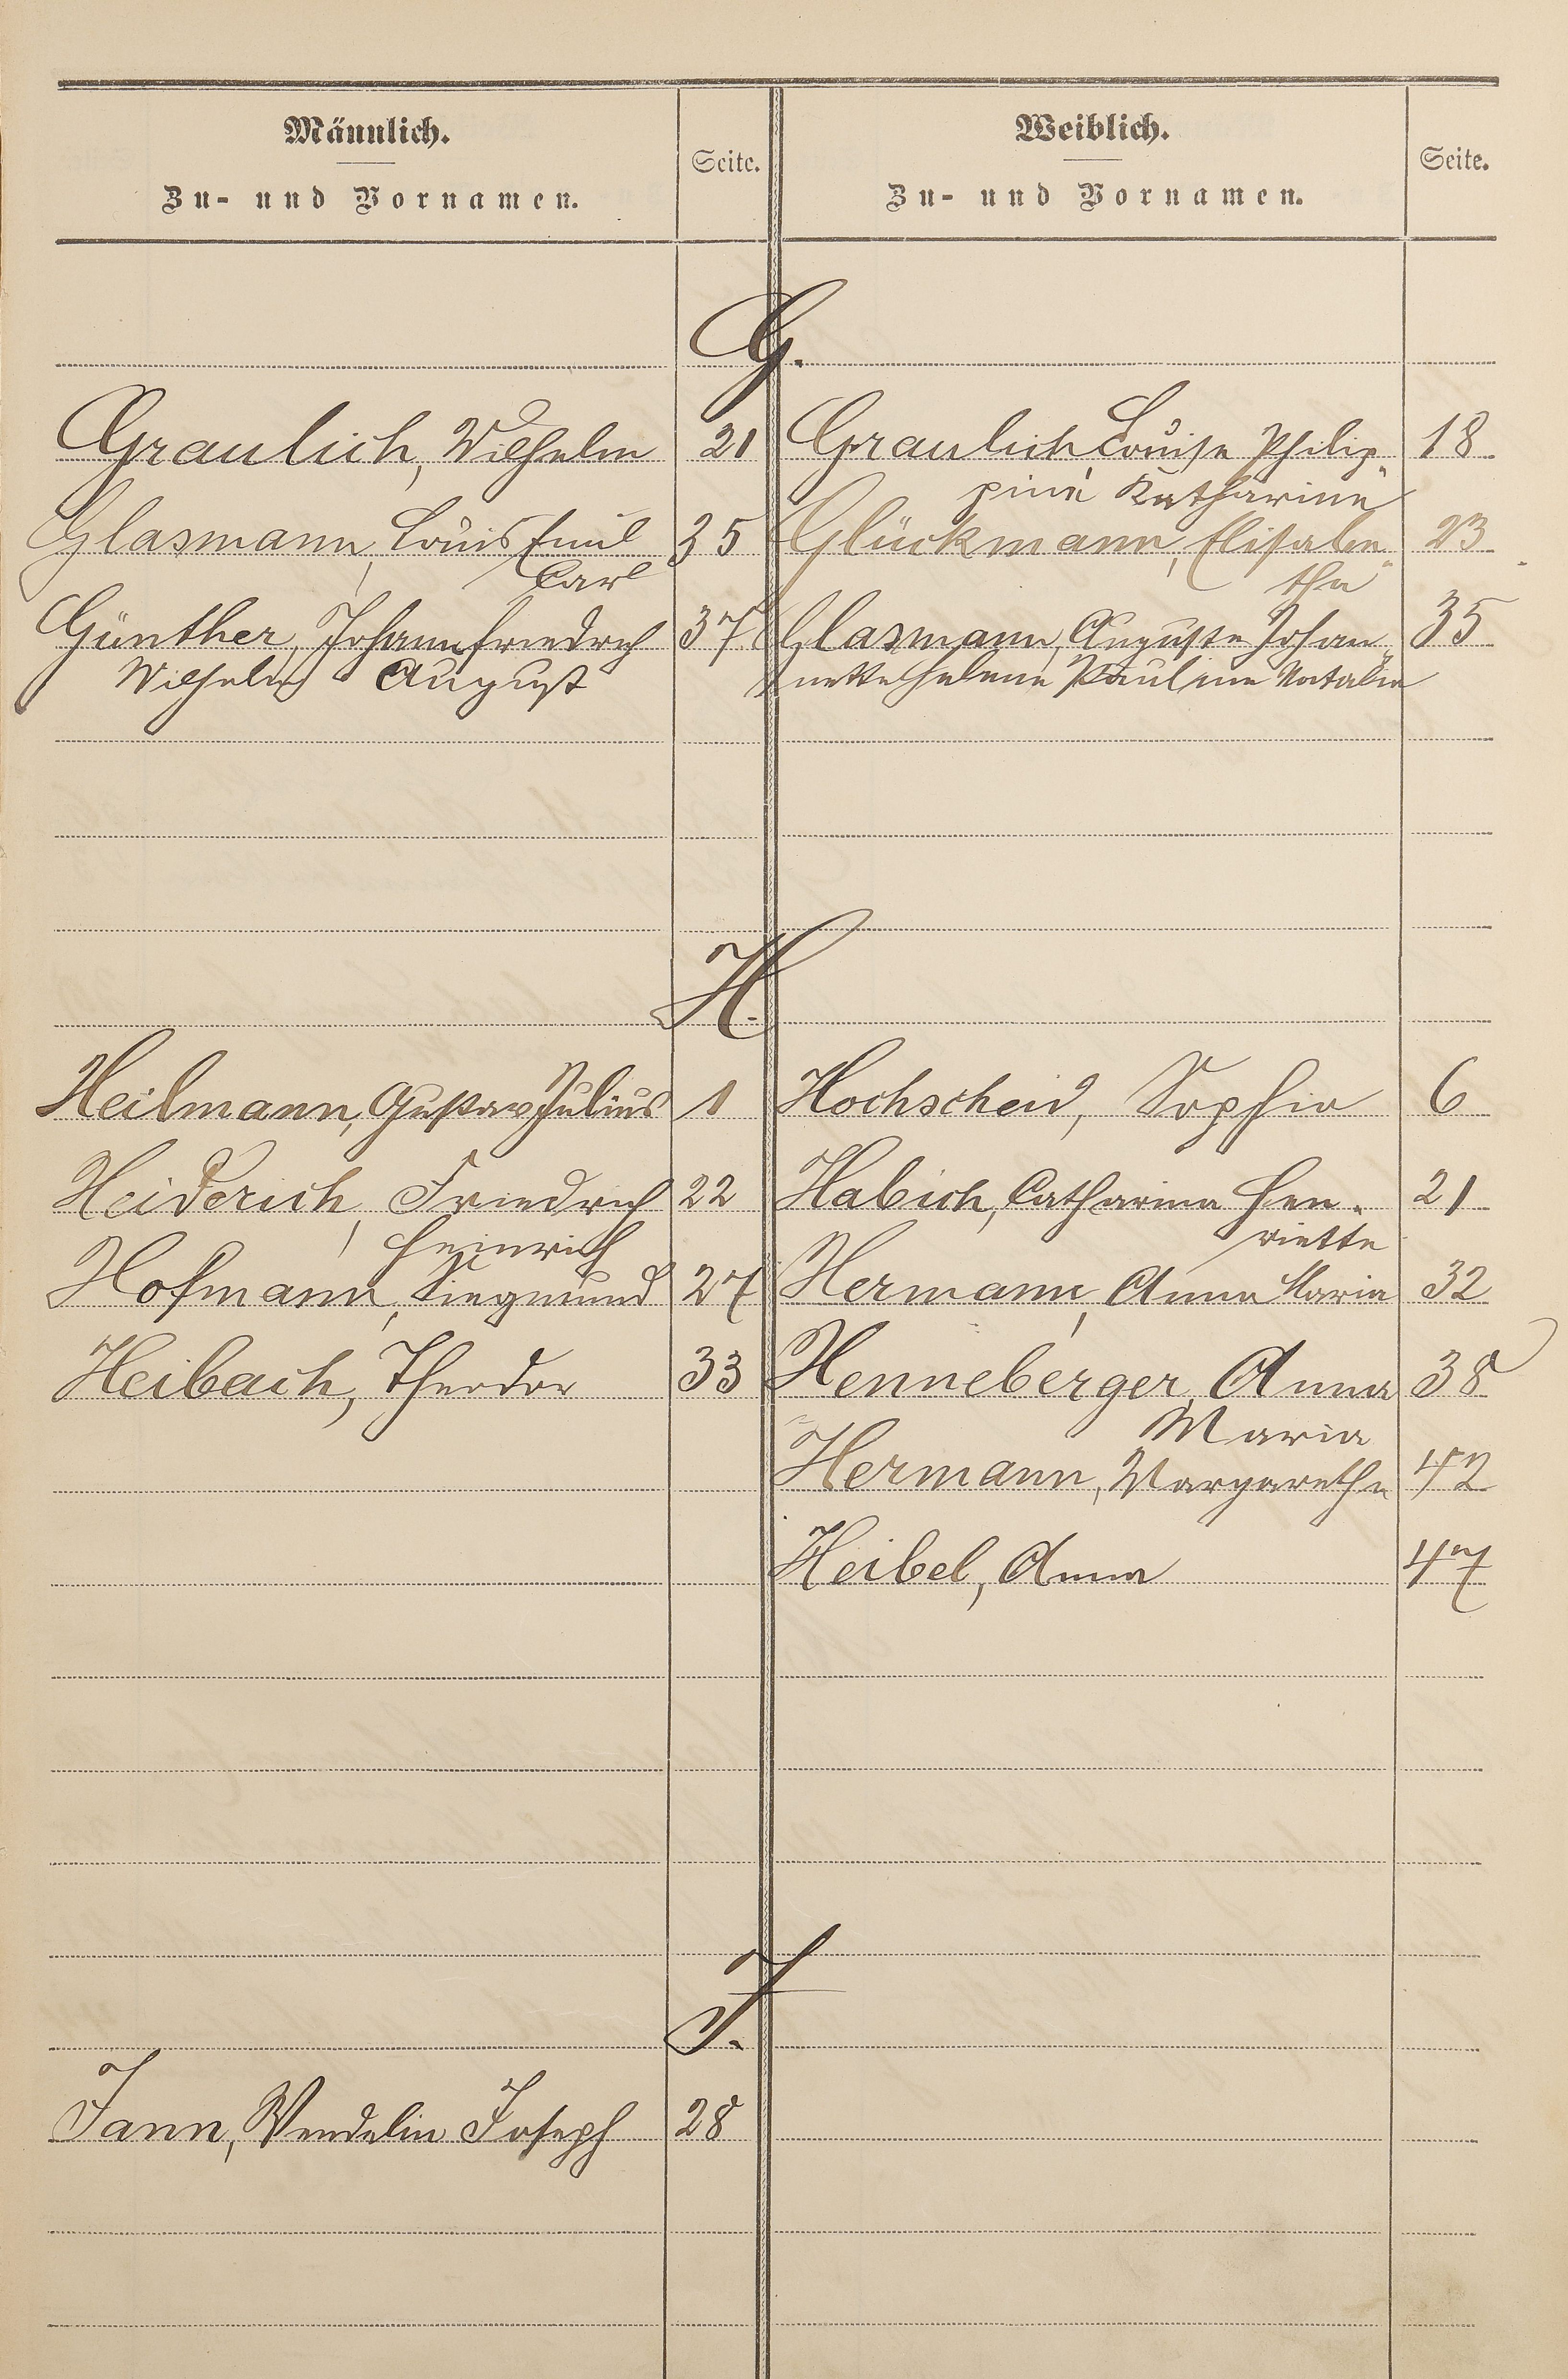 Männlich.
Zu- und Vornamen.
Seite.
Weiblich.
Zu- und Vornamen.
Seite.
G.
Graulich, Wilhelm 21
Graulich, Louise Philip- 18
pine Katharine
Glasmann, Louis Emil 35
Carl
Glückmann, Elisabe- 23
tha
Günther, Johann Friedrich 37
Wilhelm August
Glasmann, Auguste Johan- 35
nette Helene Pauline Natalie
H.
Heilmann, Gustav Julius 1
Hochscheid, Sophia 6
Heiderich, Friedrich 22
Heinrich
Habich, Catharina Hen- 21
riette
Hofmann, Siegmund 27
Hermann, Anna Maria 32
Heibach, Theodor 33
Henneberger, Anna 38
Maria
Hermann, Margarethe 42
Heibel, Anna 47
J.
Jann, Wendelin Joseph 28